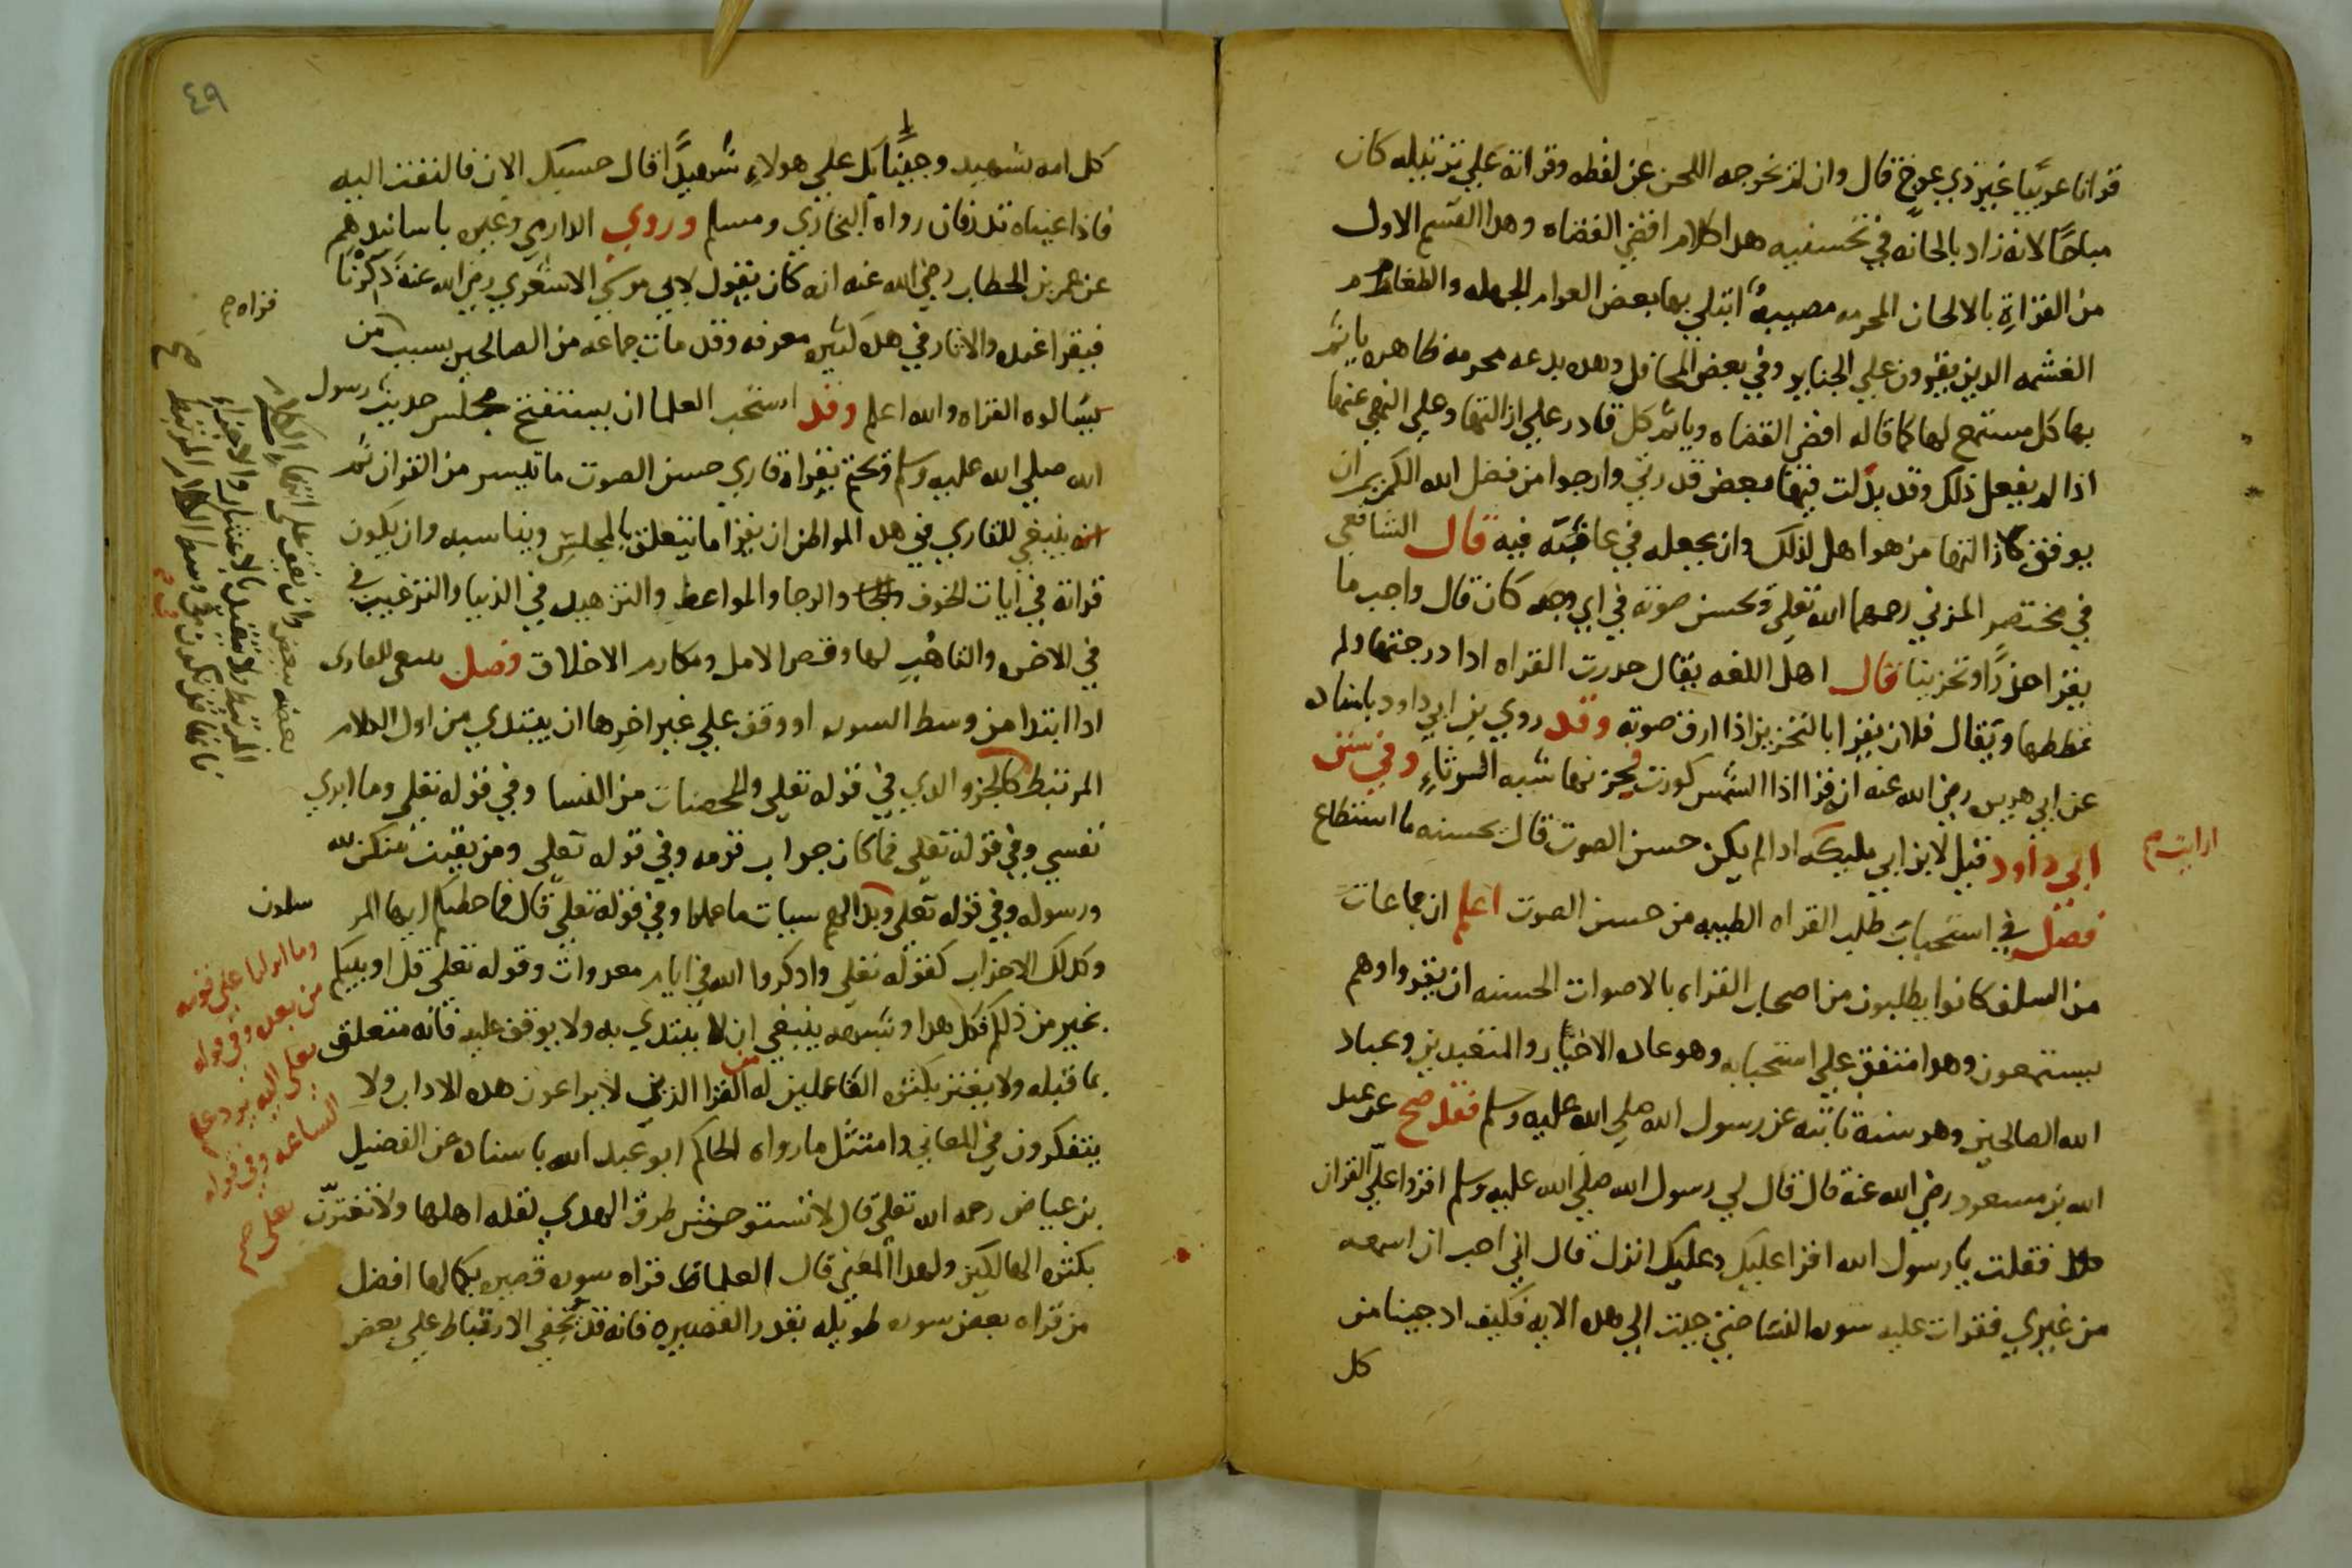 قرانا عربيا غير ذي عوج قال وان لم يخرجه اللحن عن لفظه وقراته علي ترتيله كان
مباحًا لانه زاد بالحانه في تحسنيه هدا كلام اقضي القضاه وهدا القسم الاول
من القراة بالالحان المحرمه مصيبةٌ ابتلي بها بعض العوام الجهله والطغام
الغشمه الدين يقرون علي الجنايز وفي بعض المحافل وهده بدعه محرمه ظاهره ياثم
بها كل مستمع لها كما قاله اقضي القضاه وياثم كل قادر علي ازالتها وعلي النهي عنها
اذا لم يفعل ذلك وقد بذلت فيها بعض قدرتي وارجوا من فضل الله الكريم ان
يوفق لازالتها من هو اهل لذلك وان يجعله في عافيته فيه قال الشافعي
في مختصر المزني رحمهما الله تعلي وتحسن صوته في اي وجه كان قال واحب ما
يقرا حدرًا وتحزينا قال اهل اللغه يقال حدرت القراه ادا درجتها ولم
تمططها ويقال فلان يقرا بالتحزين اذا ارق صوته وقد روي بن ابي داود باسناده
عن ابي هريره رضي الله عنه انه قرا اذا الشمس كورت يحزنها شبه الرثاءِ وفي سنن
ابي داود قيل لابن ابي مليكه ادا لم يكن حسن الصوت قال يحسنه ما استطاع
ارايت صح
فصل في استحباب طلب القراه الطيبه من حسن الصوت اعلم ان جماعات
من السلف كانوا يطلبون من اصحاب القراه بالاصوات الحسنه ان يقرواوهم
يستمعون وهدا متفق علي استحبابه وهو عاده الاخيار والمتعبدين وعباد
الله الصالحين وهو سنة ثابته عن رسول الله صلي الله عليه وسلم فقد صح عن عبد
الله بن مسعود رضي الله عنه قال قال لي رسول الله صلي الله عليه وسلم اقرا علي القران
فقلت يا رسول الله اقرا عليك وعليك انزل قال اني احب ان اسمعه
من غيري فقرات عليه سوره النسا حتي جيت الي هده الايه فكيف ادا جينا من
كل
٤٩
كل امه بشهيد وجينا بك علي هولاءِ شهيدًا قال حسبك الان فالتفت اليه
فاذا عيناه تدرفان رواه البخاري ومسلم وروي الدارمي وغيره باسانيدهم
عن عمر بن الخطاب رضي الله عنه انه كان يقول لابي موسي الاشعري رضي الله عنه ذكرنا
فيقرا عنده والاثار في هده كثيره معروفه وقد مات جماعه من الصالحين بسبب من
قراه صح
سالوه القراه والله اعلم وقد استحب العلما ان يستفتح مجلس حديث رسول
الله صلي الله عليه وسلم ويختم بقراة قاري حسن الصوت ما تيسر من القران ثم
انه ينبغي للقاري في هده المواطن ان يقرا ما يتعلق بالمجلس ويناسبه وان يكون
قراته في ايات الخوف والرجا والمواعظ والتزهيد في الدنيا والترغيب في
في الاخره والتاهب لها وقصر الامل ومكارم الاخلاق فصل ينبغي للقارى
ادا ابتدا من وسط السوره او وقف علي غير اخرها ان يبتدي من اول الكلام
المرتبط كالجزو الدي في قوله تعلي والمحصنات من النسا وفي قوله تعلي وما ابري
نفسي وفي قوله تعلي فما كان جواب قومه وفي قوله تعلي ومن يقنت منكن لله
ورسوله وفي قوله تعلي وبدا لهم سيات ما عملوا وفي قوله تعلي قال فما خطبكم ايها المر
سلون
وكدلك الاحزاب كقوله تعلي وادكروا الله في ايام معدودات وقوله تعلي قل اونبيكم
بخير من ذلكم فكل هدا وشبهه ينبغي ان لا يبتدي به ولا يوقف عليه فانه متعلق
بما قبله ولا يغتر بكثره الفاعلين له من القرا الذين لا يراعون هده الاداب ولا
يتفكرون في المعاني وامتثل ما رواه الحاكم ابو عبد الله باسناده عن الفضيل
بن عياض رحمه الله تعلي قال لا تستوحش طرق الهدي لقله اهلها ولا تغترن
بكثره الهالكين ولهدا المعني قال العلما قراه سوره قصيره بكمالها افضل
من قراه بعض سوره طويله بقدر القصيره فانه قد يخفي الارتباط علي بعض
بعضه ببعض وان يقف علي انتهاءِ الكلام
المرتبط ولا يتقيد بالاعشار والاجزاءِ
فانها قد تكون في وسط الكلام المرتبط صح
وما انزلنا علي قومه
من بعده وفي قوله
تعلي اليه يرد علم
الساعه وفي قوله
تعلي صح